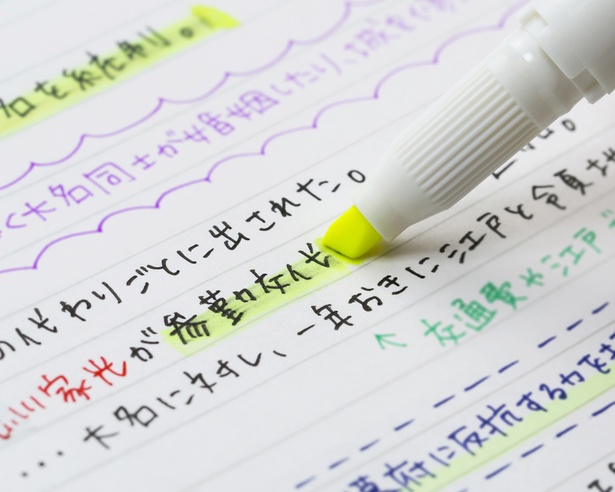 名を統制。
く大名同士が婚姻したり、城を
の代わりごとに出された。
川家光が参勤交代
…大名に対し、一年おきに江戸と領地
↑交通費や江戸
幕府に反抗する力を